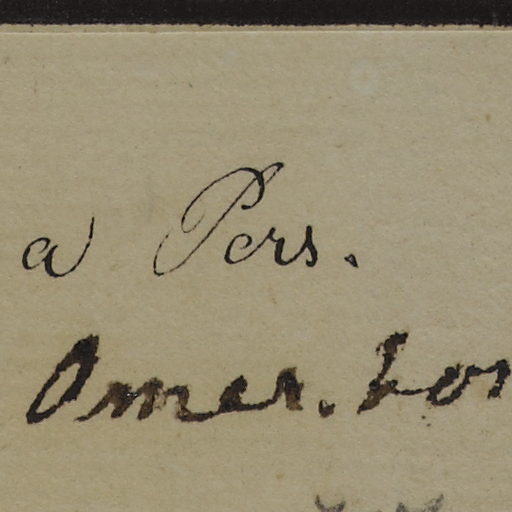 a Pers.
Amer. bor